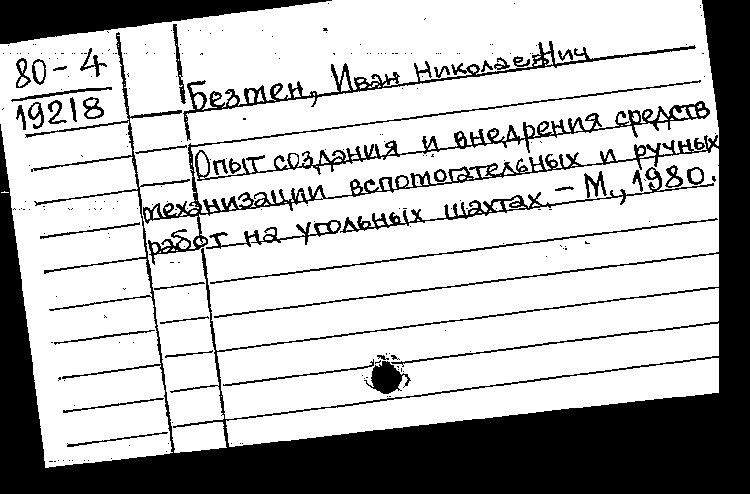 80-4
19218
Безмен, Иван Николаевич
Опыт создания и внедрения средств
механизации вспомогательных и ручных
работ на угольных шахтах. – М., 1980.